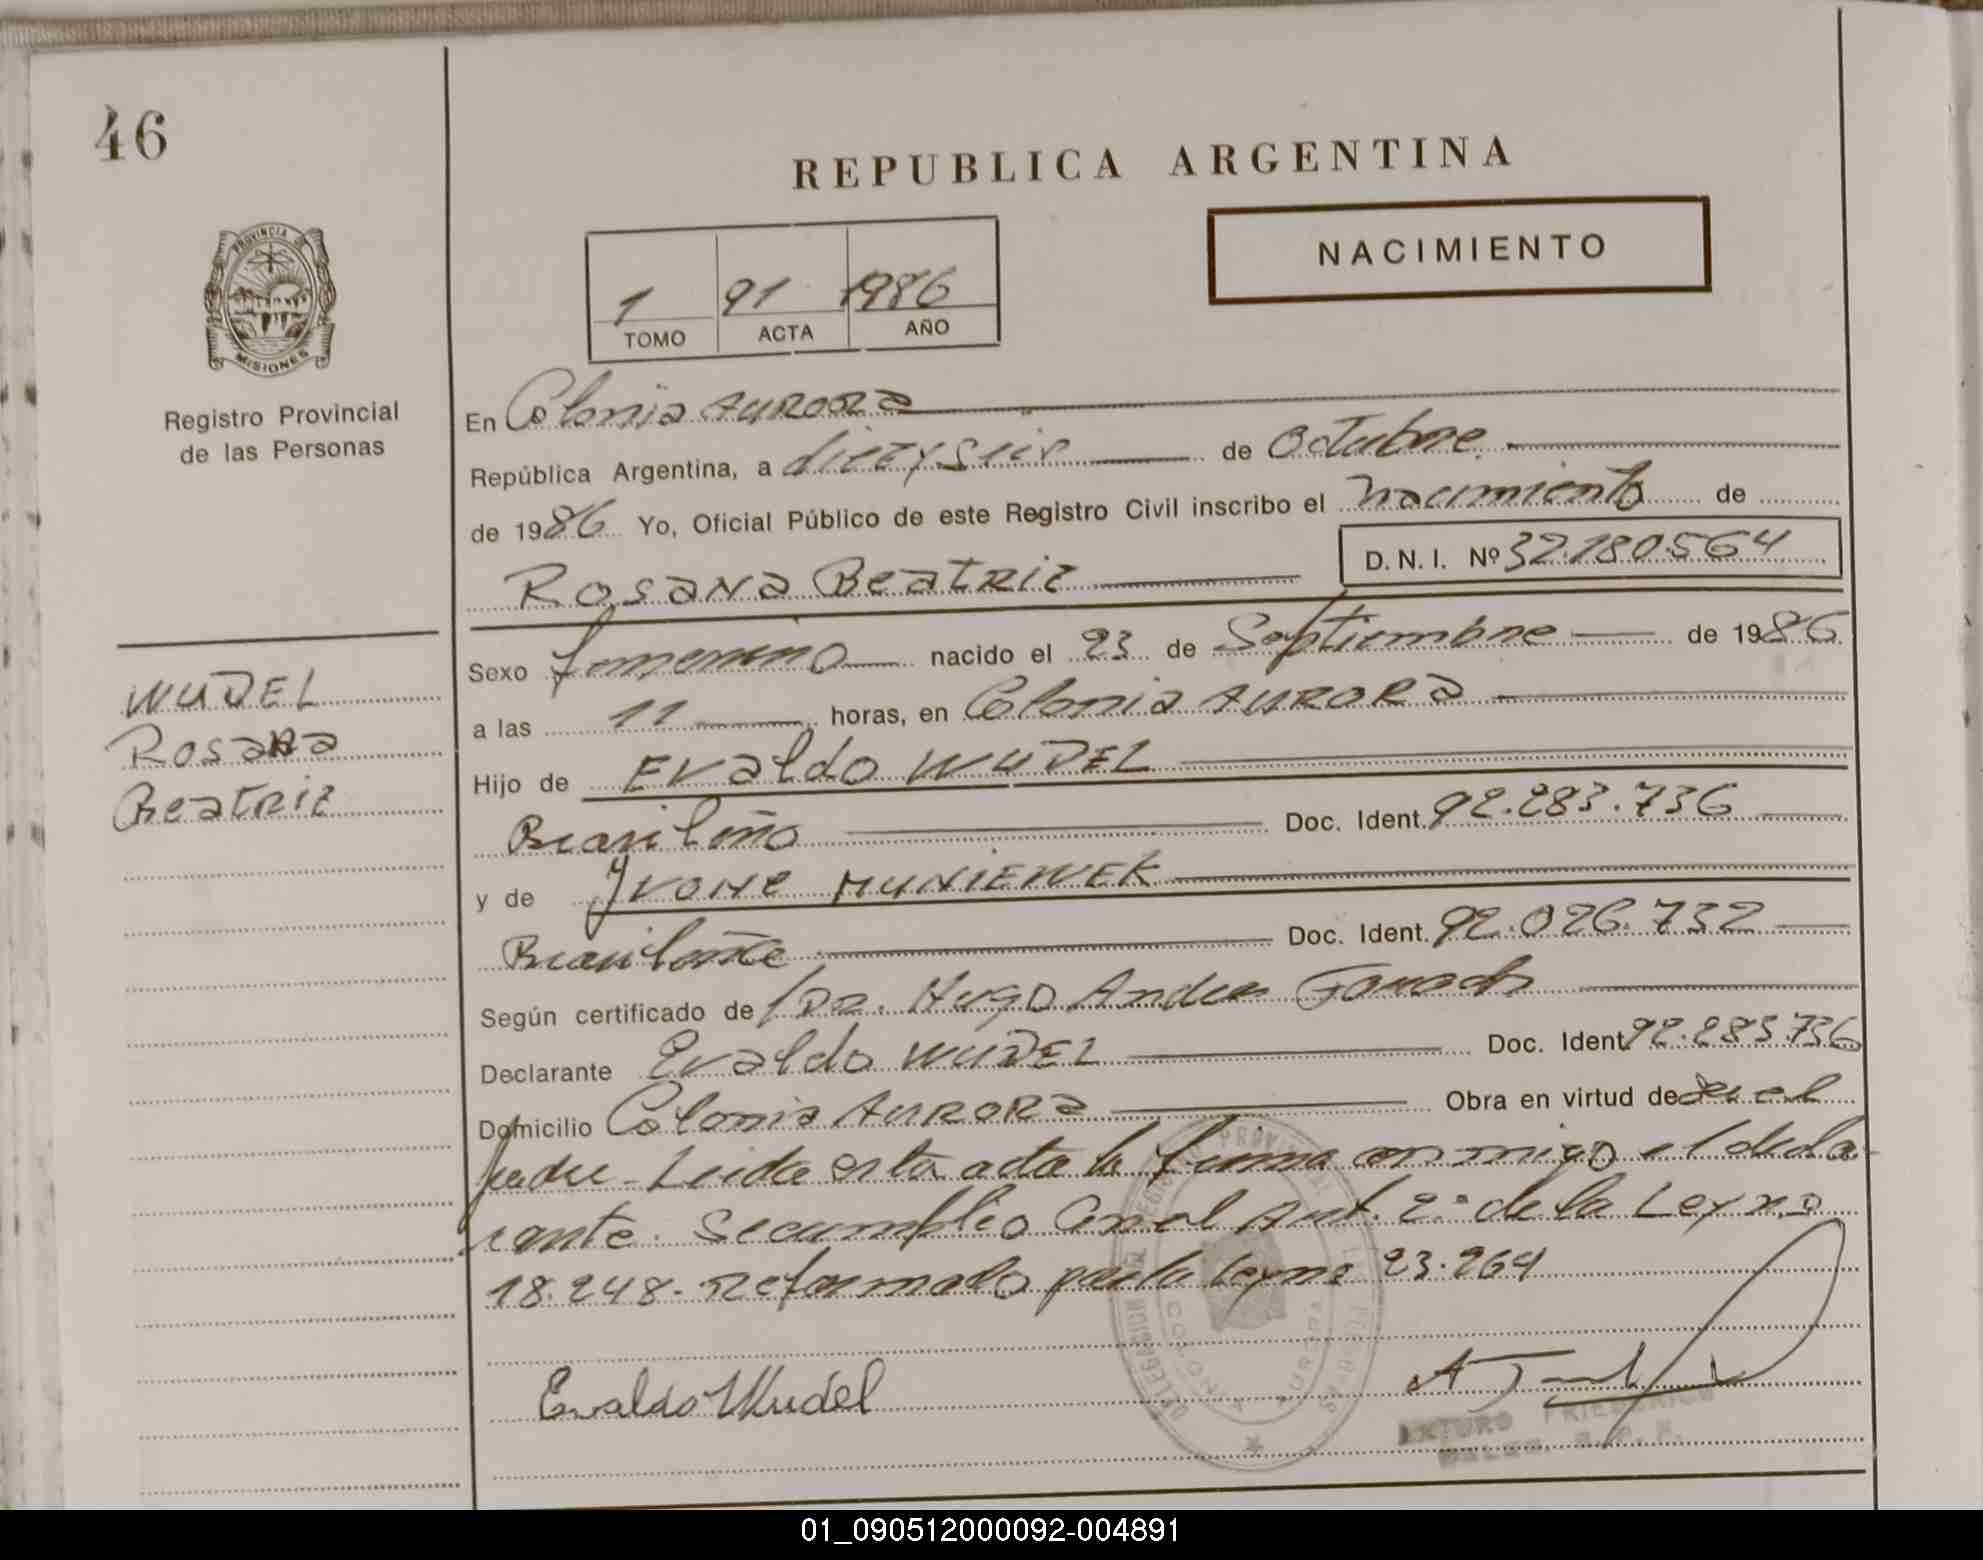 46
REPUBLICA ARGENTINA
NACIMIENTO
PROVINCIA DE
MISIONES
1 91 1986
TOMO ACTA AÑO
Registro Provincial
de las Personas
WUDEL
Rosana
Beatriz
En Colonia Aurora
República Argentina, a diezyseis de Octubre.
de 1986 Yo, Oficial Público de este Registro Civil inscribo el nacimiento de
Rosana Beatriz D.N.I. Nº 32.180.564
Sexo femenino nacido el 23 de Septiembre de 1986
a las 11 horas, en Colonia Aurora
Hijo de Evaldo WUDEL
Brasileño Doc. Ident. 92.283.736
y de Yvone MUNIEWEK
Brasileña Doc. Ident. 92.026.732
Según certificado de Dr. Hugo Andres
Declarante Evaldo WUDEL Doc. Ident. 92.283.736
Domicilio Colonia Aurora Obra en virtud de ser el
padre - Leida esta acta la firma conmigo el decla-
rante. Se cumplio con el Art. 2º de la Ley no
18.248 - Reformado por la Ley no 23.264
Evaldo Wudel
ARTURO FRIEDERICO
DELEG. R. P. P.
01_090512000092-004891